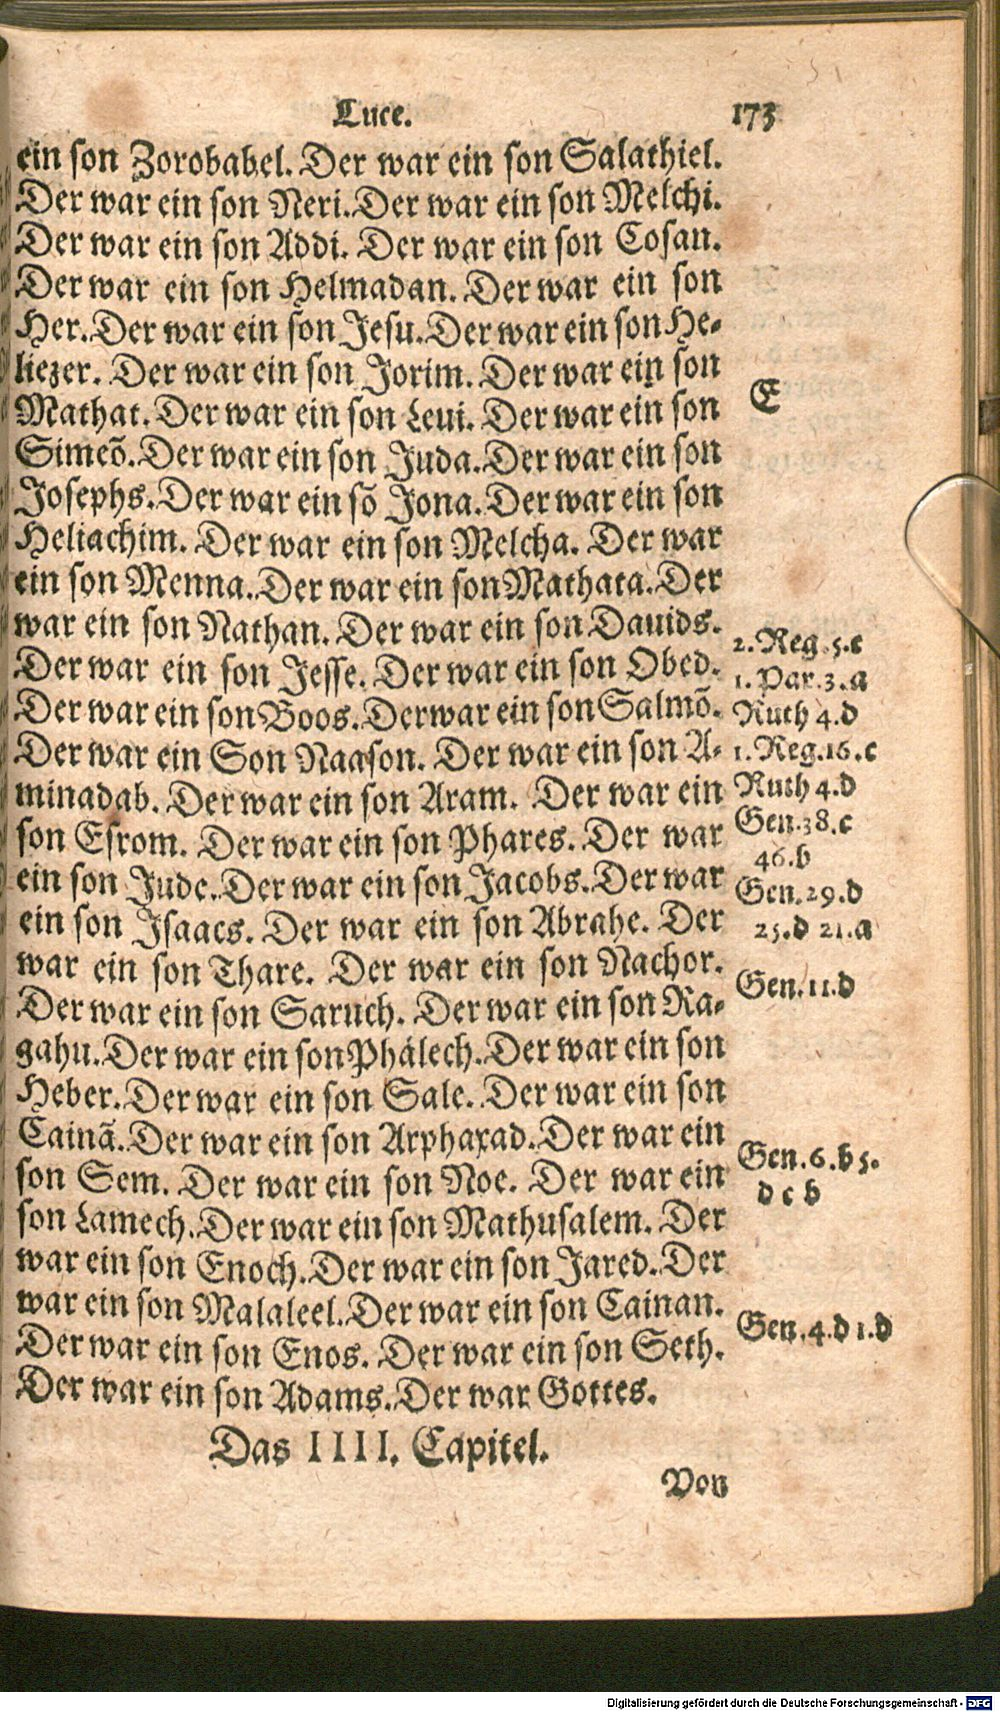 Luce. 173
ein son Zorobabel. Der war ein son Salathiel.
Der war ein son Neri. Der war ein son Melchi.
Der war ein son Addi. Der war ein son Cosan.
Der war ein son Helmadan. Der war ein son
Her. Der war ein son Jesu. Der war ein son He-
liezer. Der war ein son Jorim. Der war ein son
Mathat. Der war ein son Leui. Der war ein son
E
Simeõ. Der war ein son Juda. Der war ein son
Josephs. Der war ein sõ Jona. Der war ein son
Heliachim. Der war ein son Melcha. Der war
ein son Menna. Der war ein son Mathata. Der
war ein son Nathan. Der war ein son Dauids.
Der war ein son Jesse. Der war ein son Obed.
Der war ein son Boos. Der war ein son Salmõ.
Der war ein Son Naason. Der war ein son A-
minadab. Der war ein son Aram. Der war ein
son Esrom. Der war ein son Phares. Der war
ein son Jude. Der war ein son Jacobs. Der war
ein son Isaacs. Der war ein son Abrahe. Der
war ein son Thare. Der war ein son Nachor.
Der war ein son Saruch. Der war ein son Ra-
gahu. Der war ein son Phalech. Der war ein son
Heber. Der war ein son Sale. Der war ein son
Cainã. Der war ein son Arphaxad. Der war ein
son Sem. Der war ein son Noe. Der war ein
son Lamech. Der war ein son Mathusalem. Der
war ein son Enoch. Der war ein son Jared. Der
war ein son Malaleel. Der war ein son Cainan.
Der war ein son Enos. Der war ein son Seth.
Der war ein son Adams. Der war Gottes.
Das IIII. Capitel.
Von
2. Reg. 5. c
1. Par. 3. a
Ruth 4. d
1. Reg. 16. c
Ruth 4. d
Gen. 38. c
46. b
Gen. 29. d
25. d 21. a
Gen. 11. d
Gen. 6. b 5.
d c b
Gen. 4. d 1. d
Digitalisierung gefördert durch die Deutsche Forschungsgemeinschaft - DFG